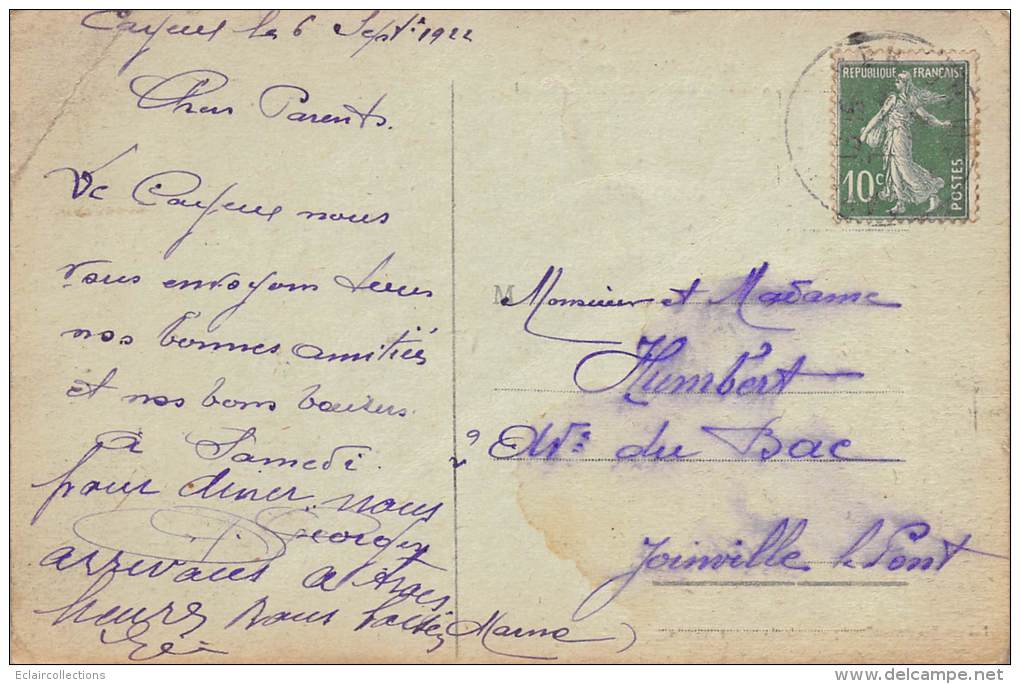 Cayeux le 6 Sept. 1922
Chers Parents.
De Cayeux nous
vous envoyons tous
nos bonnes amitiés
et nos bons baisers.
à Samedi
pour diner nous
Georges
arrivons à trois
heures
RÉPUBLIQUE FRANÇAISE
10c
POSTES
M
Monsieur et Madame
Humbert
du Bac
Joinville le Pont
(Marne)
Eclaircollections
delcampe.net